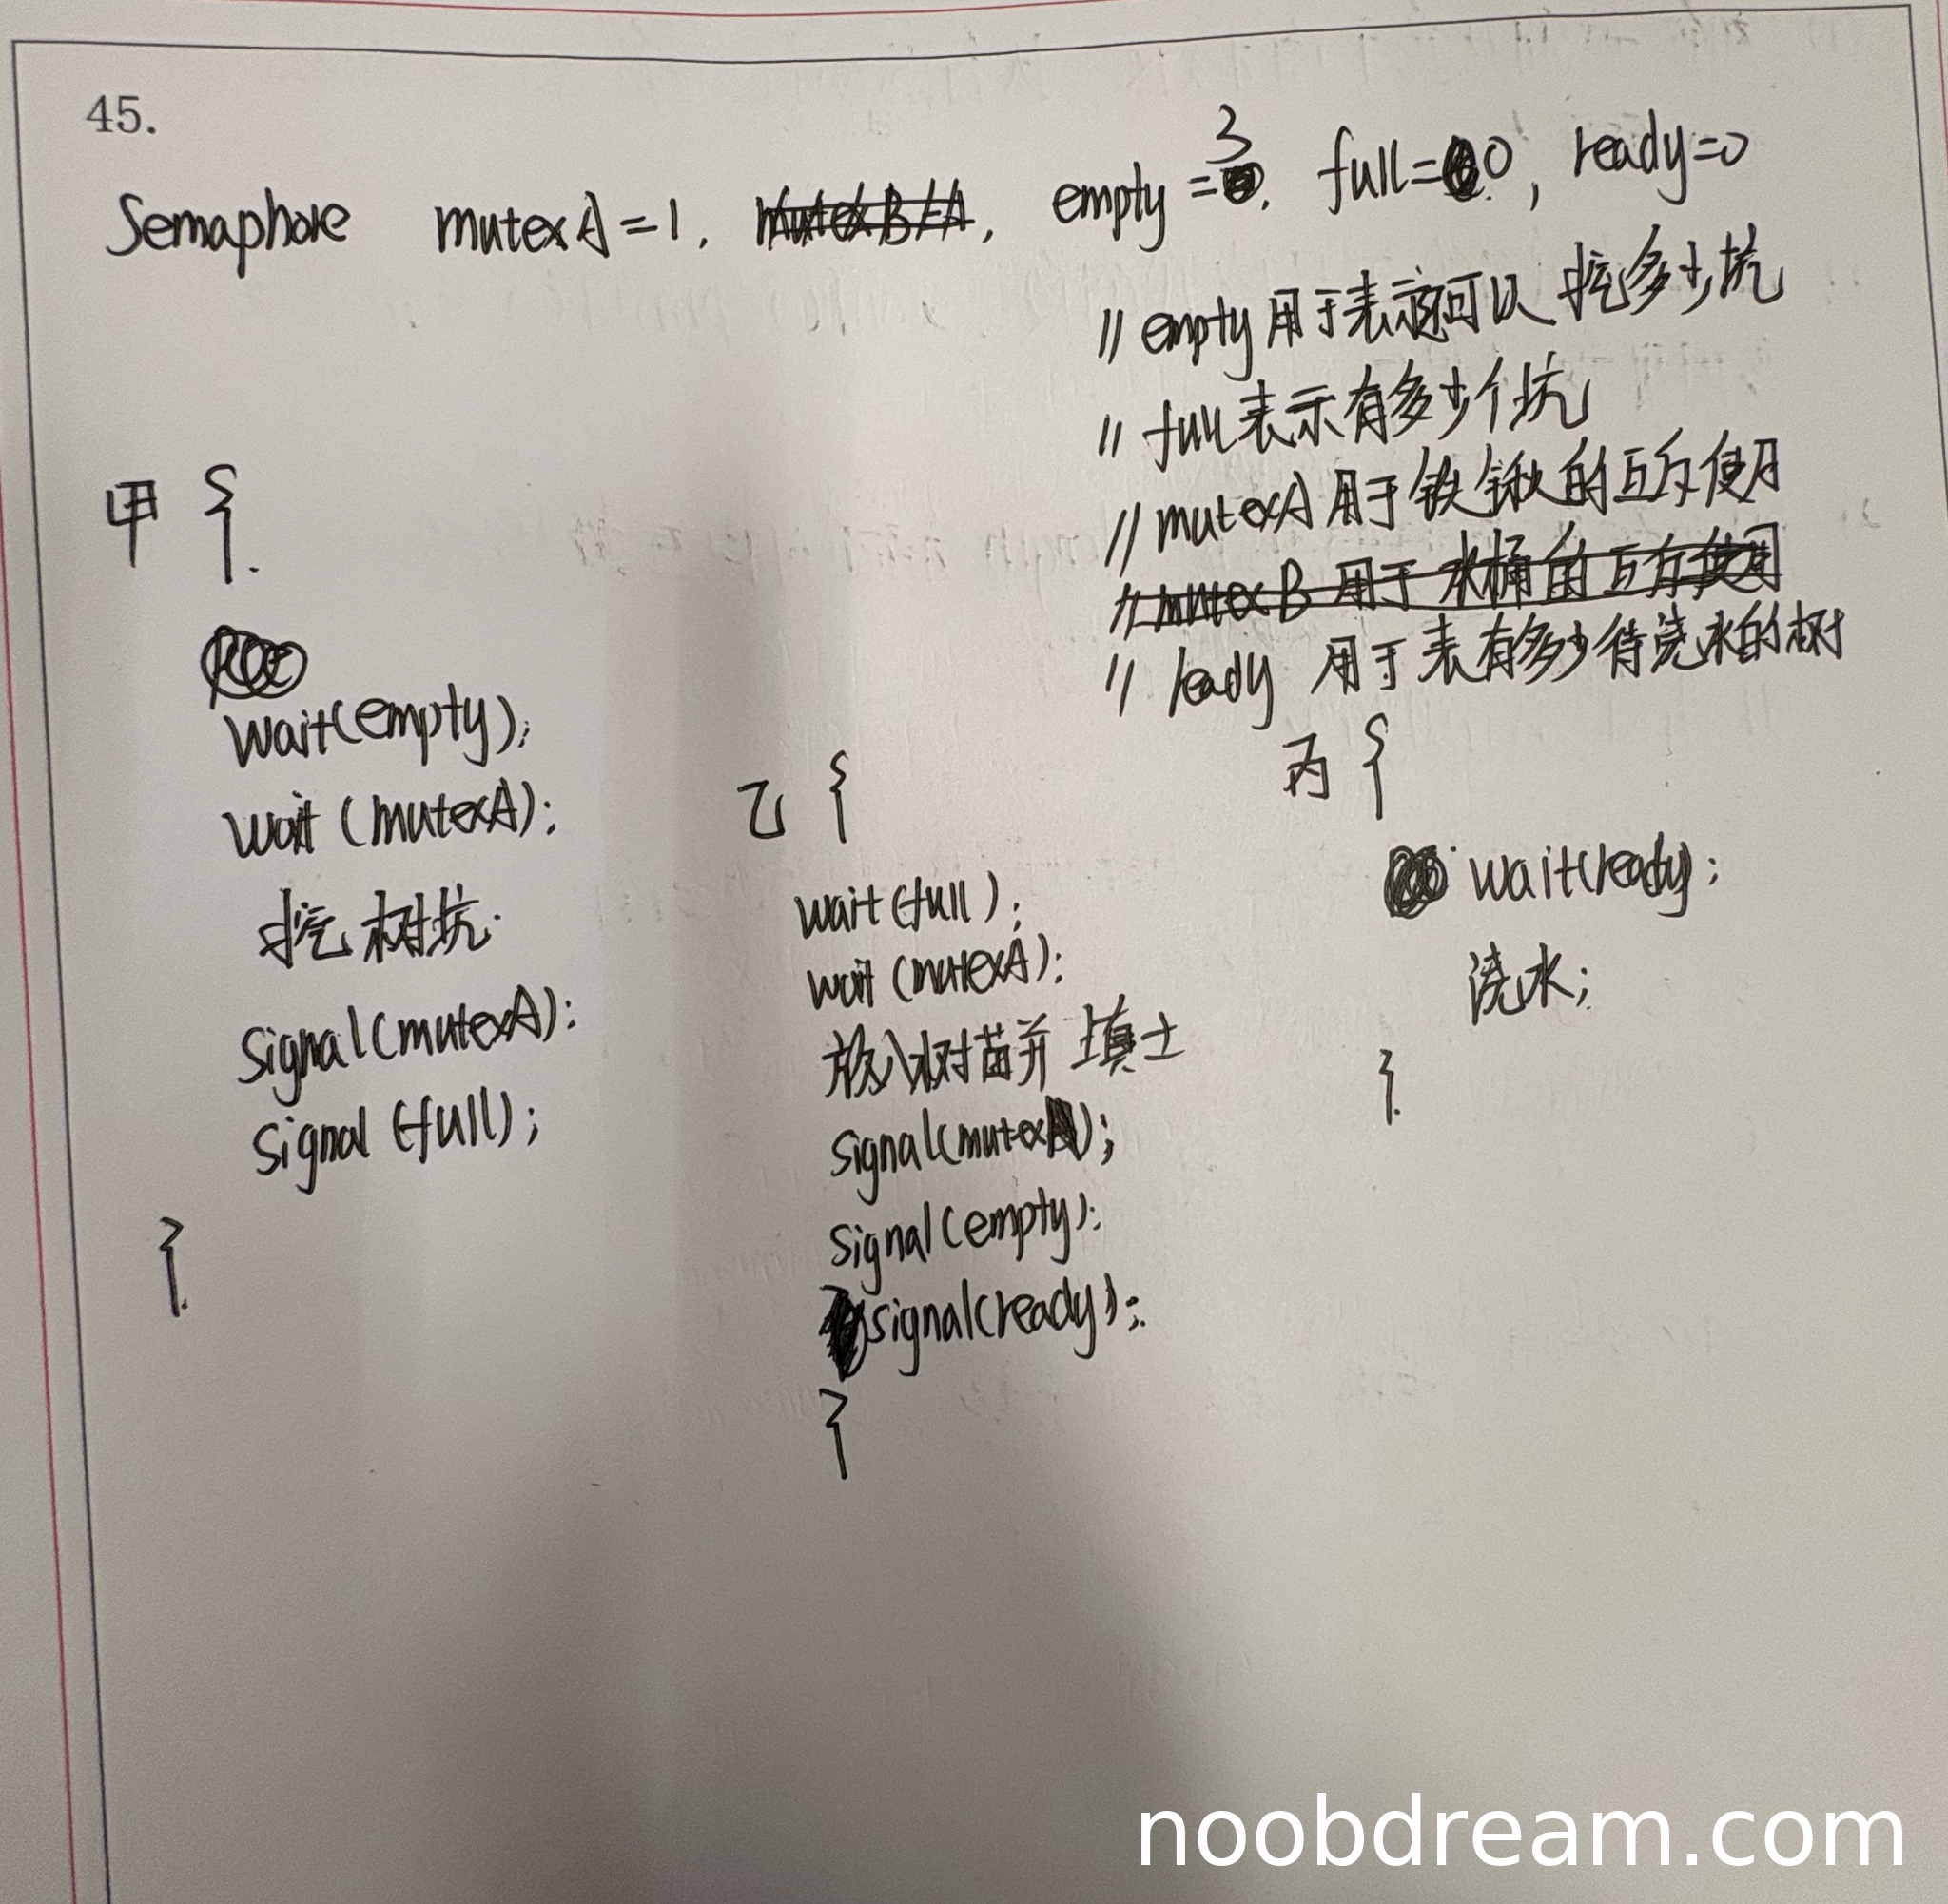 45.
Semaphore mutexA=1, mutexB=1, empty=3, full=0, ready=0
// empty 用于表示还可以挖多少坑
// full 表示有多少个坑
// mutexA 用于铁锹的互斥使用
// mutexB 用于水桶的互斥使用
// ready 用于表有多少待浇水的树
甲 {
wait(empty);
wait(mutexA);
挖树坑.
signal(mutexA);
signal(full);
}
乙 {
wait(full);
wait(mutexA);
放入树苗并填土
signal(mutexA);
signal(empty);
signal(ready);
}
丙 {
wait(ready);
浇水;
}
noobdream.com